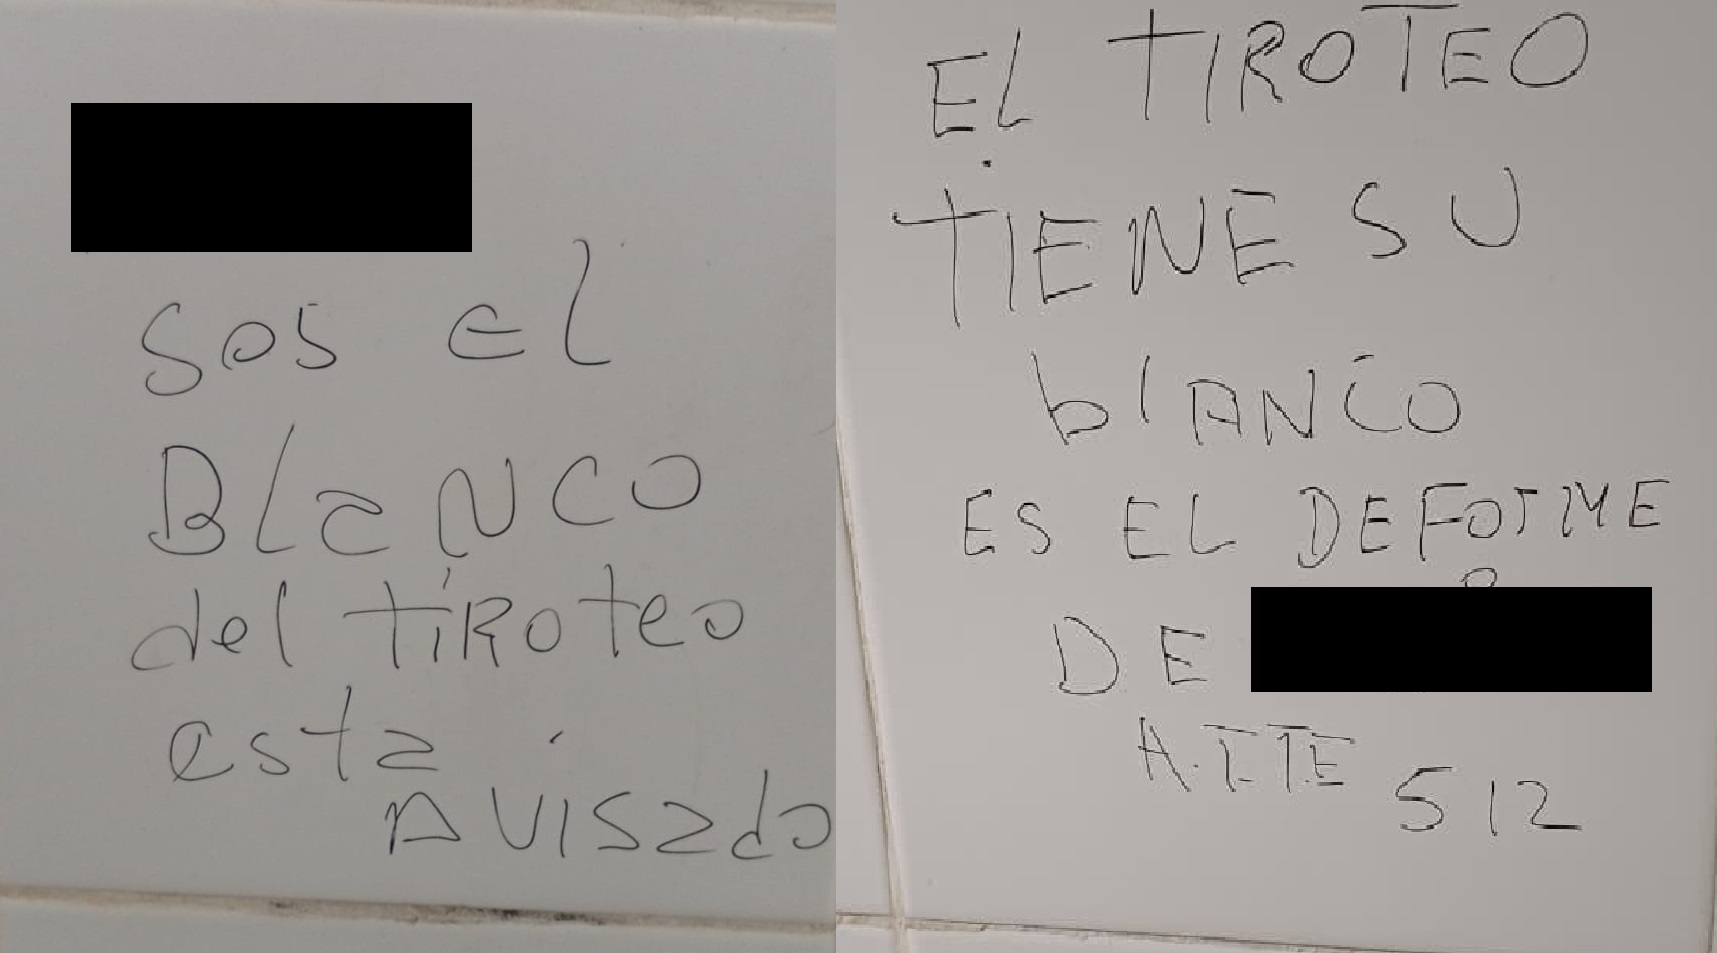 sos el
BLaNCO
del tiRoteo
esta
AVISado
EL TIROTEO
TIENE SU
blANCO
ES EL DEFOrME
DE
A.TTE 512